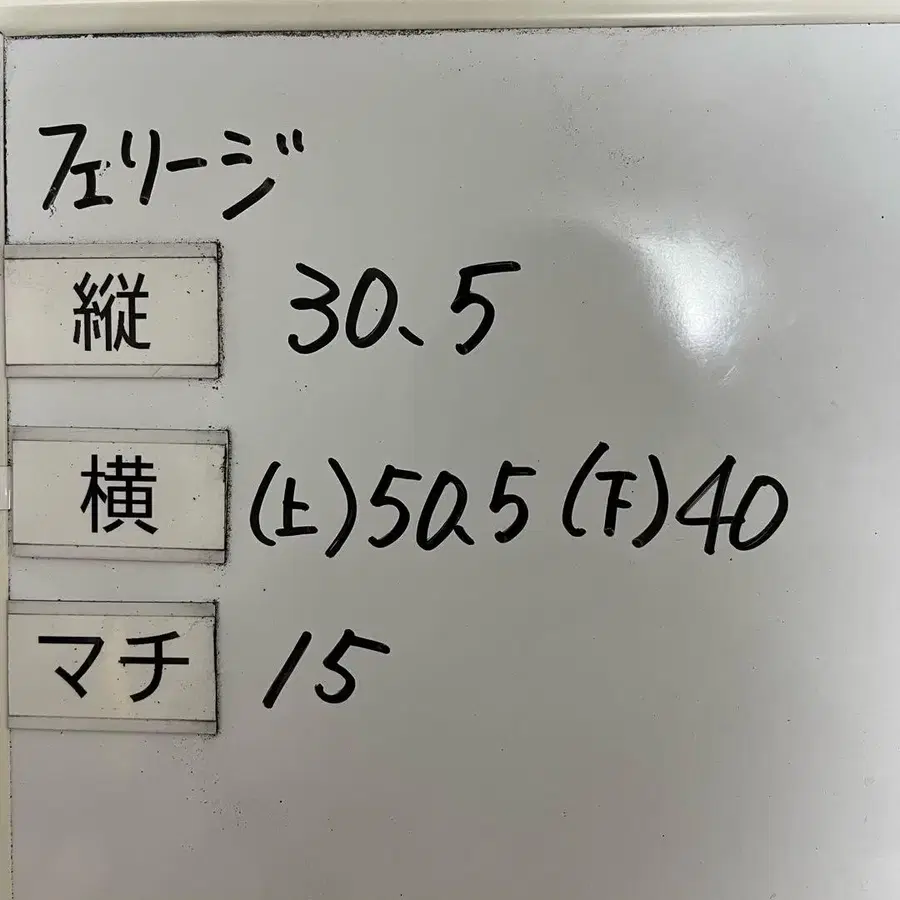 フェリージ
縦 30、5
横 (上)50、5 (下)40
マチ 15